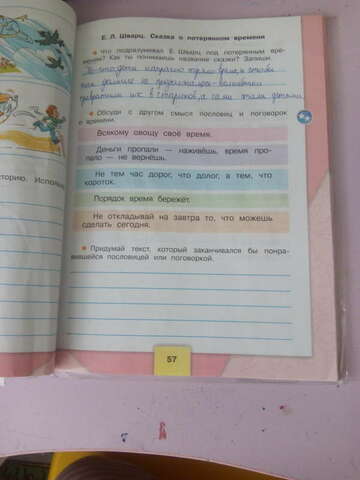 Е. Л. Шварц. Сказка о потерянном времени
Что подразумевал Е. Шварц под потерянным вре-
менем? Как ты понимаешь название сказки? Запиши.
То что дети напрасно теряли время, и
как
превратили их в стариков, а сами стали детьми.
Обсуди с другом смысл пословиц и поговорок
о времени.
Всякому овощу своё время.
Деньги пропали — наживёшь, время про-
пало — не вернёшь.
Не тем час дорог, что долог, а тем, что
короток.
Порядок время бережёт.
Не откладывай на завтра то, что можешь
сделать сегодня.
торию. Исполь
Придумай текст, который заканчивался бы понра-
вившейся пословицей или поговоркой.
57